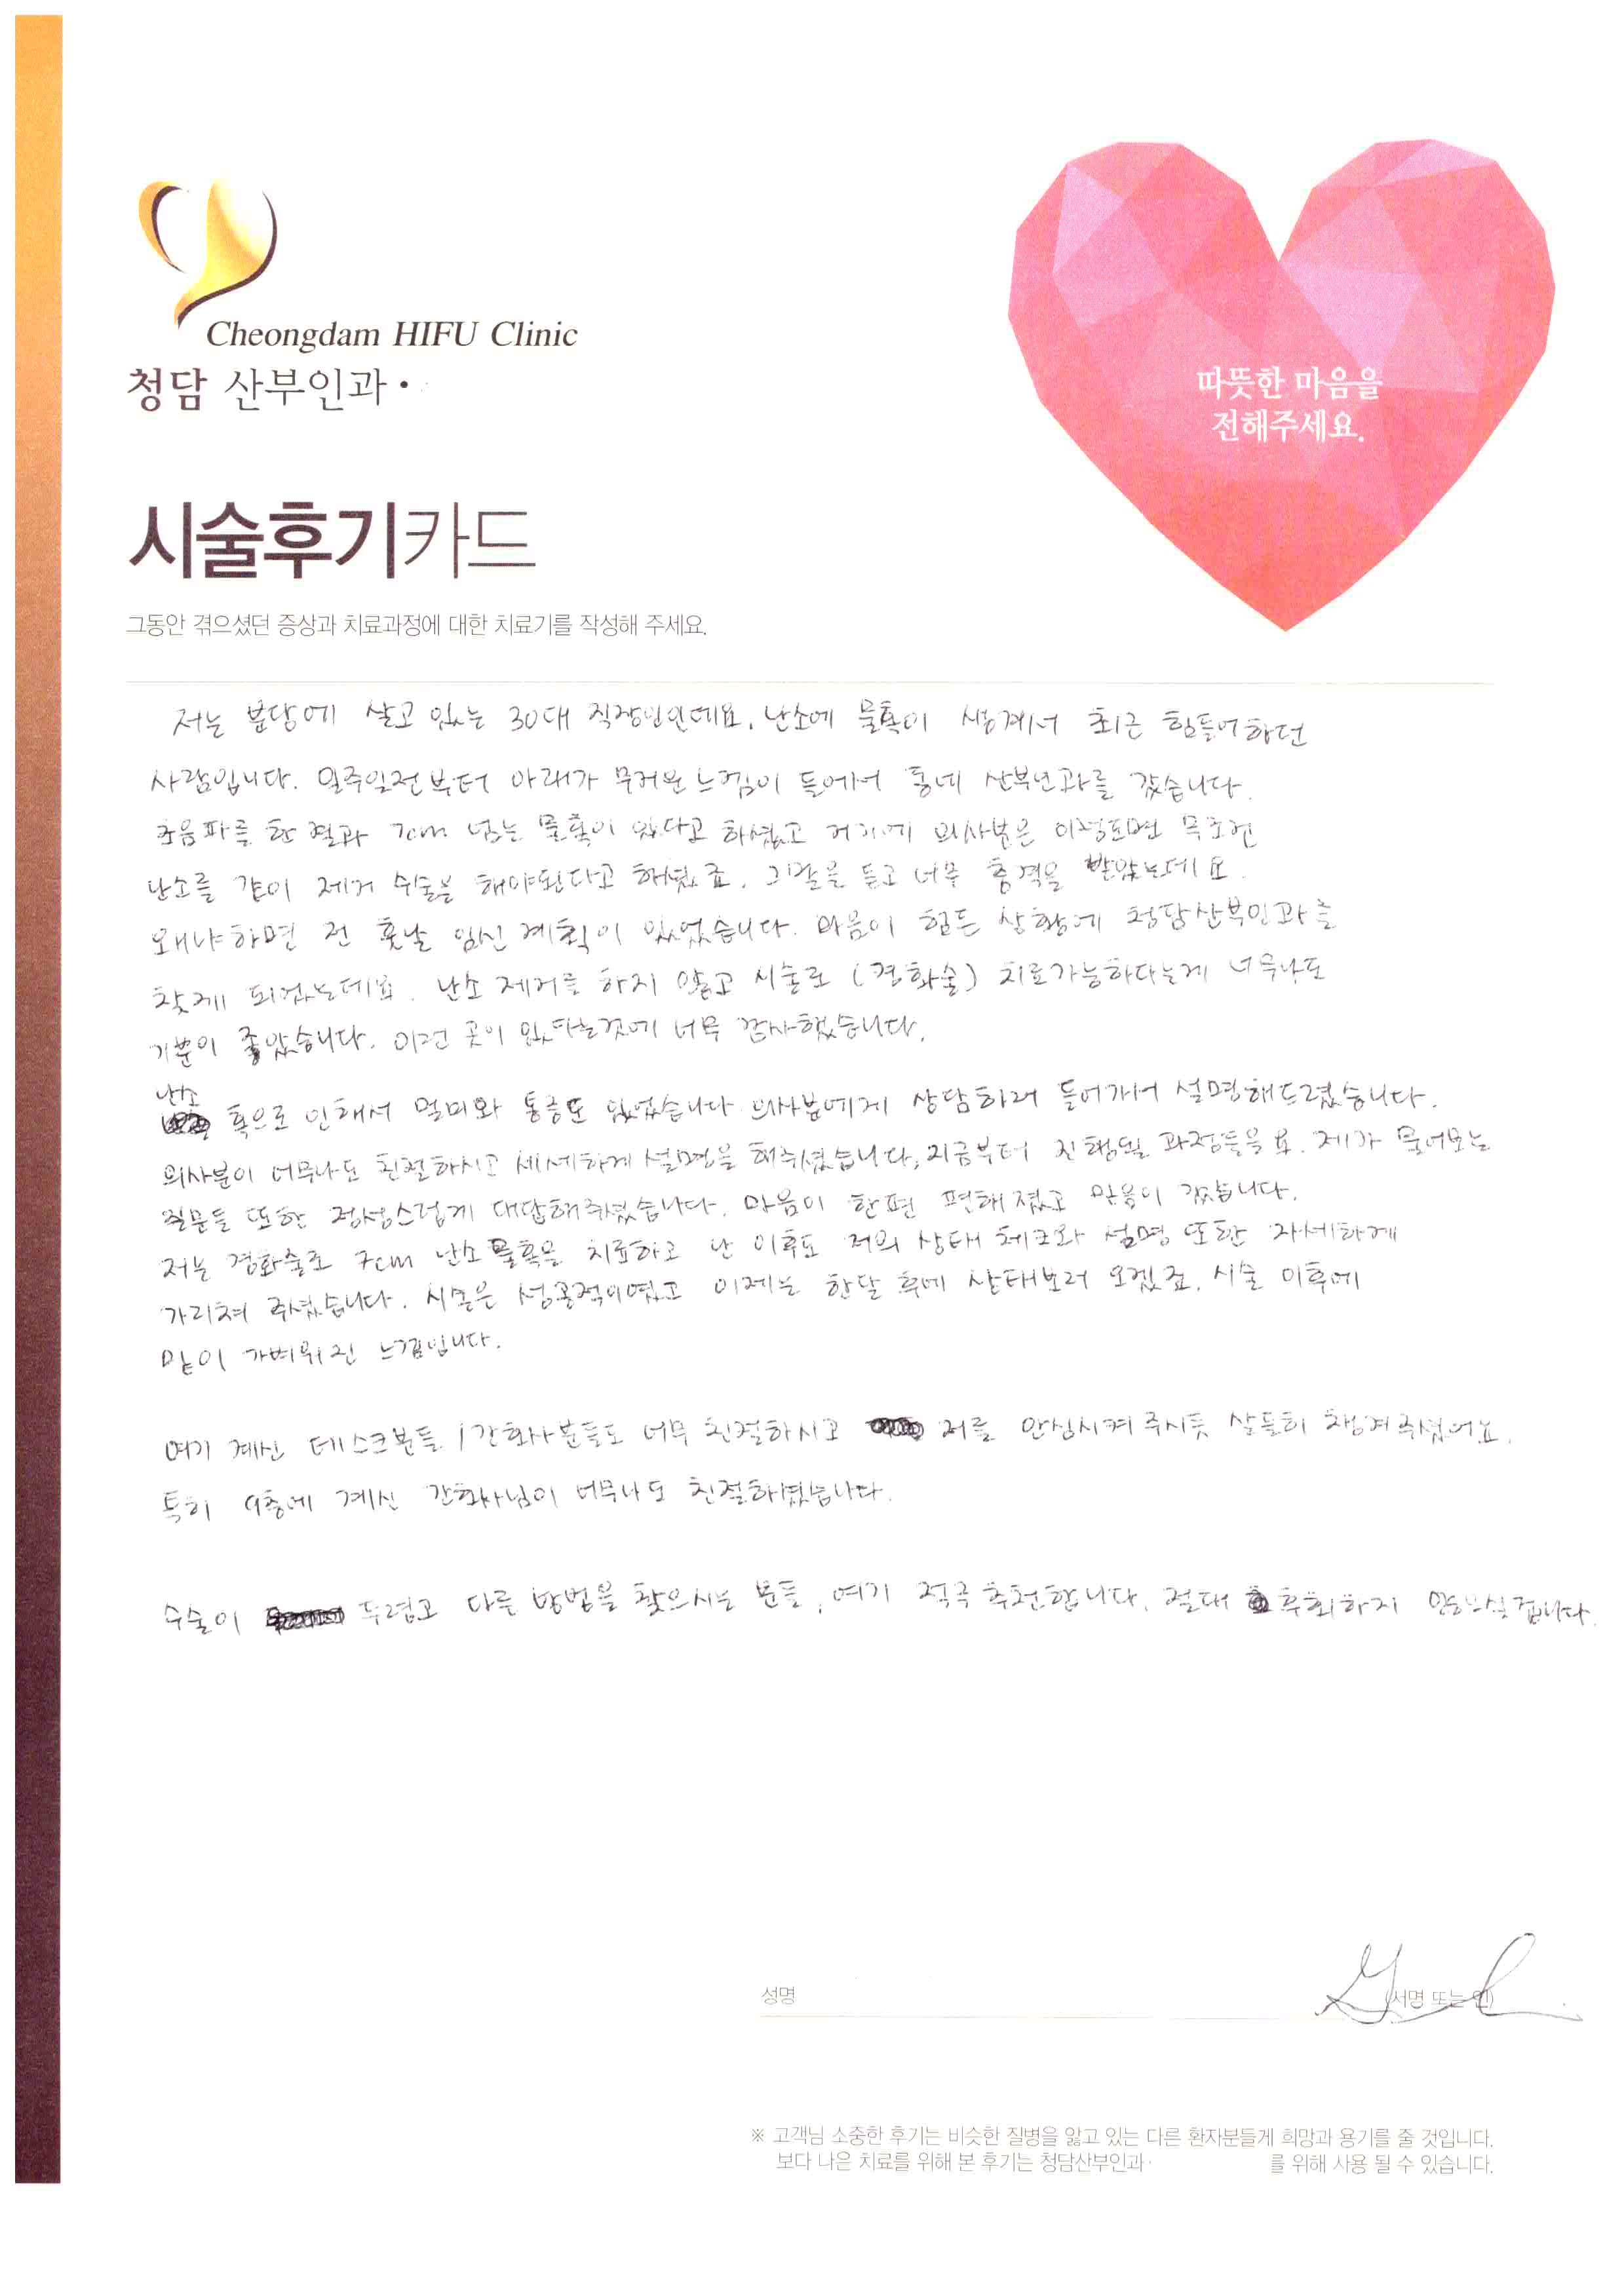 Cheongdam HIFU Clinic
청담 산부인과·
따뜻한 마음을
전해주세요.
시술후기카드
그동안 겪으셨던 증상과 치료과정에 대한 치료기를 작성해 주세요.
저는 분당에 살고 있는 30대 직장인인데요. 난소에 물혹이 생겨서 최근 힘들어하던
사람입니다. 일주일전부터 아래가 무거운 느낌이 들어서 동네 산부인과를 갔습니다.
초음파를 한 결과 7cm 넘는 물혹이 있다고 하셨고 거기에 의사분은 이정도면 무조건
난소를 같이 제거 수술을 해야된다고 하셨죠. 그말을 듣고 너무 충격을 받았는데요.
왜냐하면 전 훗날 임신 계획이 있었습니다. 마음이 힘든 상황에 청담산부인과를
찾게 되었는데요. 난소 제거를 하지 않고 시술로 (경화술) 치료가능하다는게 너무나도
기분이 좋았습니다. 이런 곳이 있다는것에 너무 감사했습니다.
난소
혹으로 인해서 멀미와 통증도 있었습니다 의사분에게 상담하러 들어가서 설명해드렸습니다.
의사분이 너무나도 친절하시고 세세하게 설명을 해주셨습니다, 지금부터 진행될 과정들을요. 제가 물어보는
질문들 또한 정성스럽게 대답해주셨습니다. 마음이 한편 편해졌고 믿음이 갔습니다.
저는 경화술로 7cm 난소물혹을 치료하고 난 이후도 저의 상태 체크와 설명 또한 자세하게
가리쳐 주셨습니다. 시술은 성공적이였고 이제는 한달 후에 상태보러 오겠죠. 시술 이후에
많이 가벼워진 느낌입니다.
여기 계신 데스크분들 / 간호사분들도 너무 친절하시고 저를 안심시켜 주시듯 살뜰히 챙겨주셨어요.
특히 9층에 계신 간호사님이 너무나도 친절하셨습니다.
수술이 두렵고 다른 방법을 찾으시는 분들, 여기 적극 추천합니다. 절대 후회하지 않으실겁니다.
성명
(서명 또는 인)
※ 고객님 소중한 후기는 비슷한 질병을 앓고 있는 다른 환자분들게 희망과 용기를 줄 것입니다.
보다 나은 치료를 위해 본 후기는 청담산부인과· 를 위해 사용 될 수 있습니다.